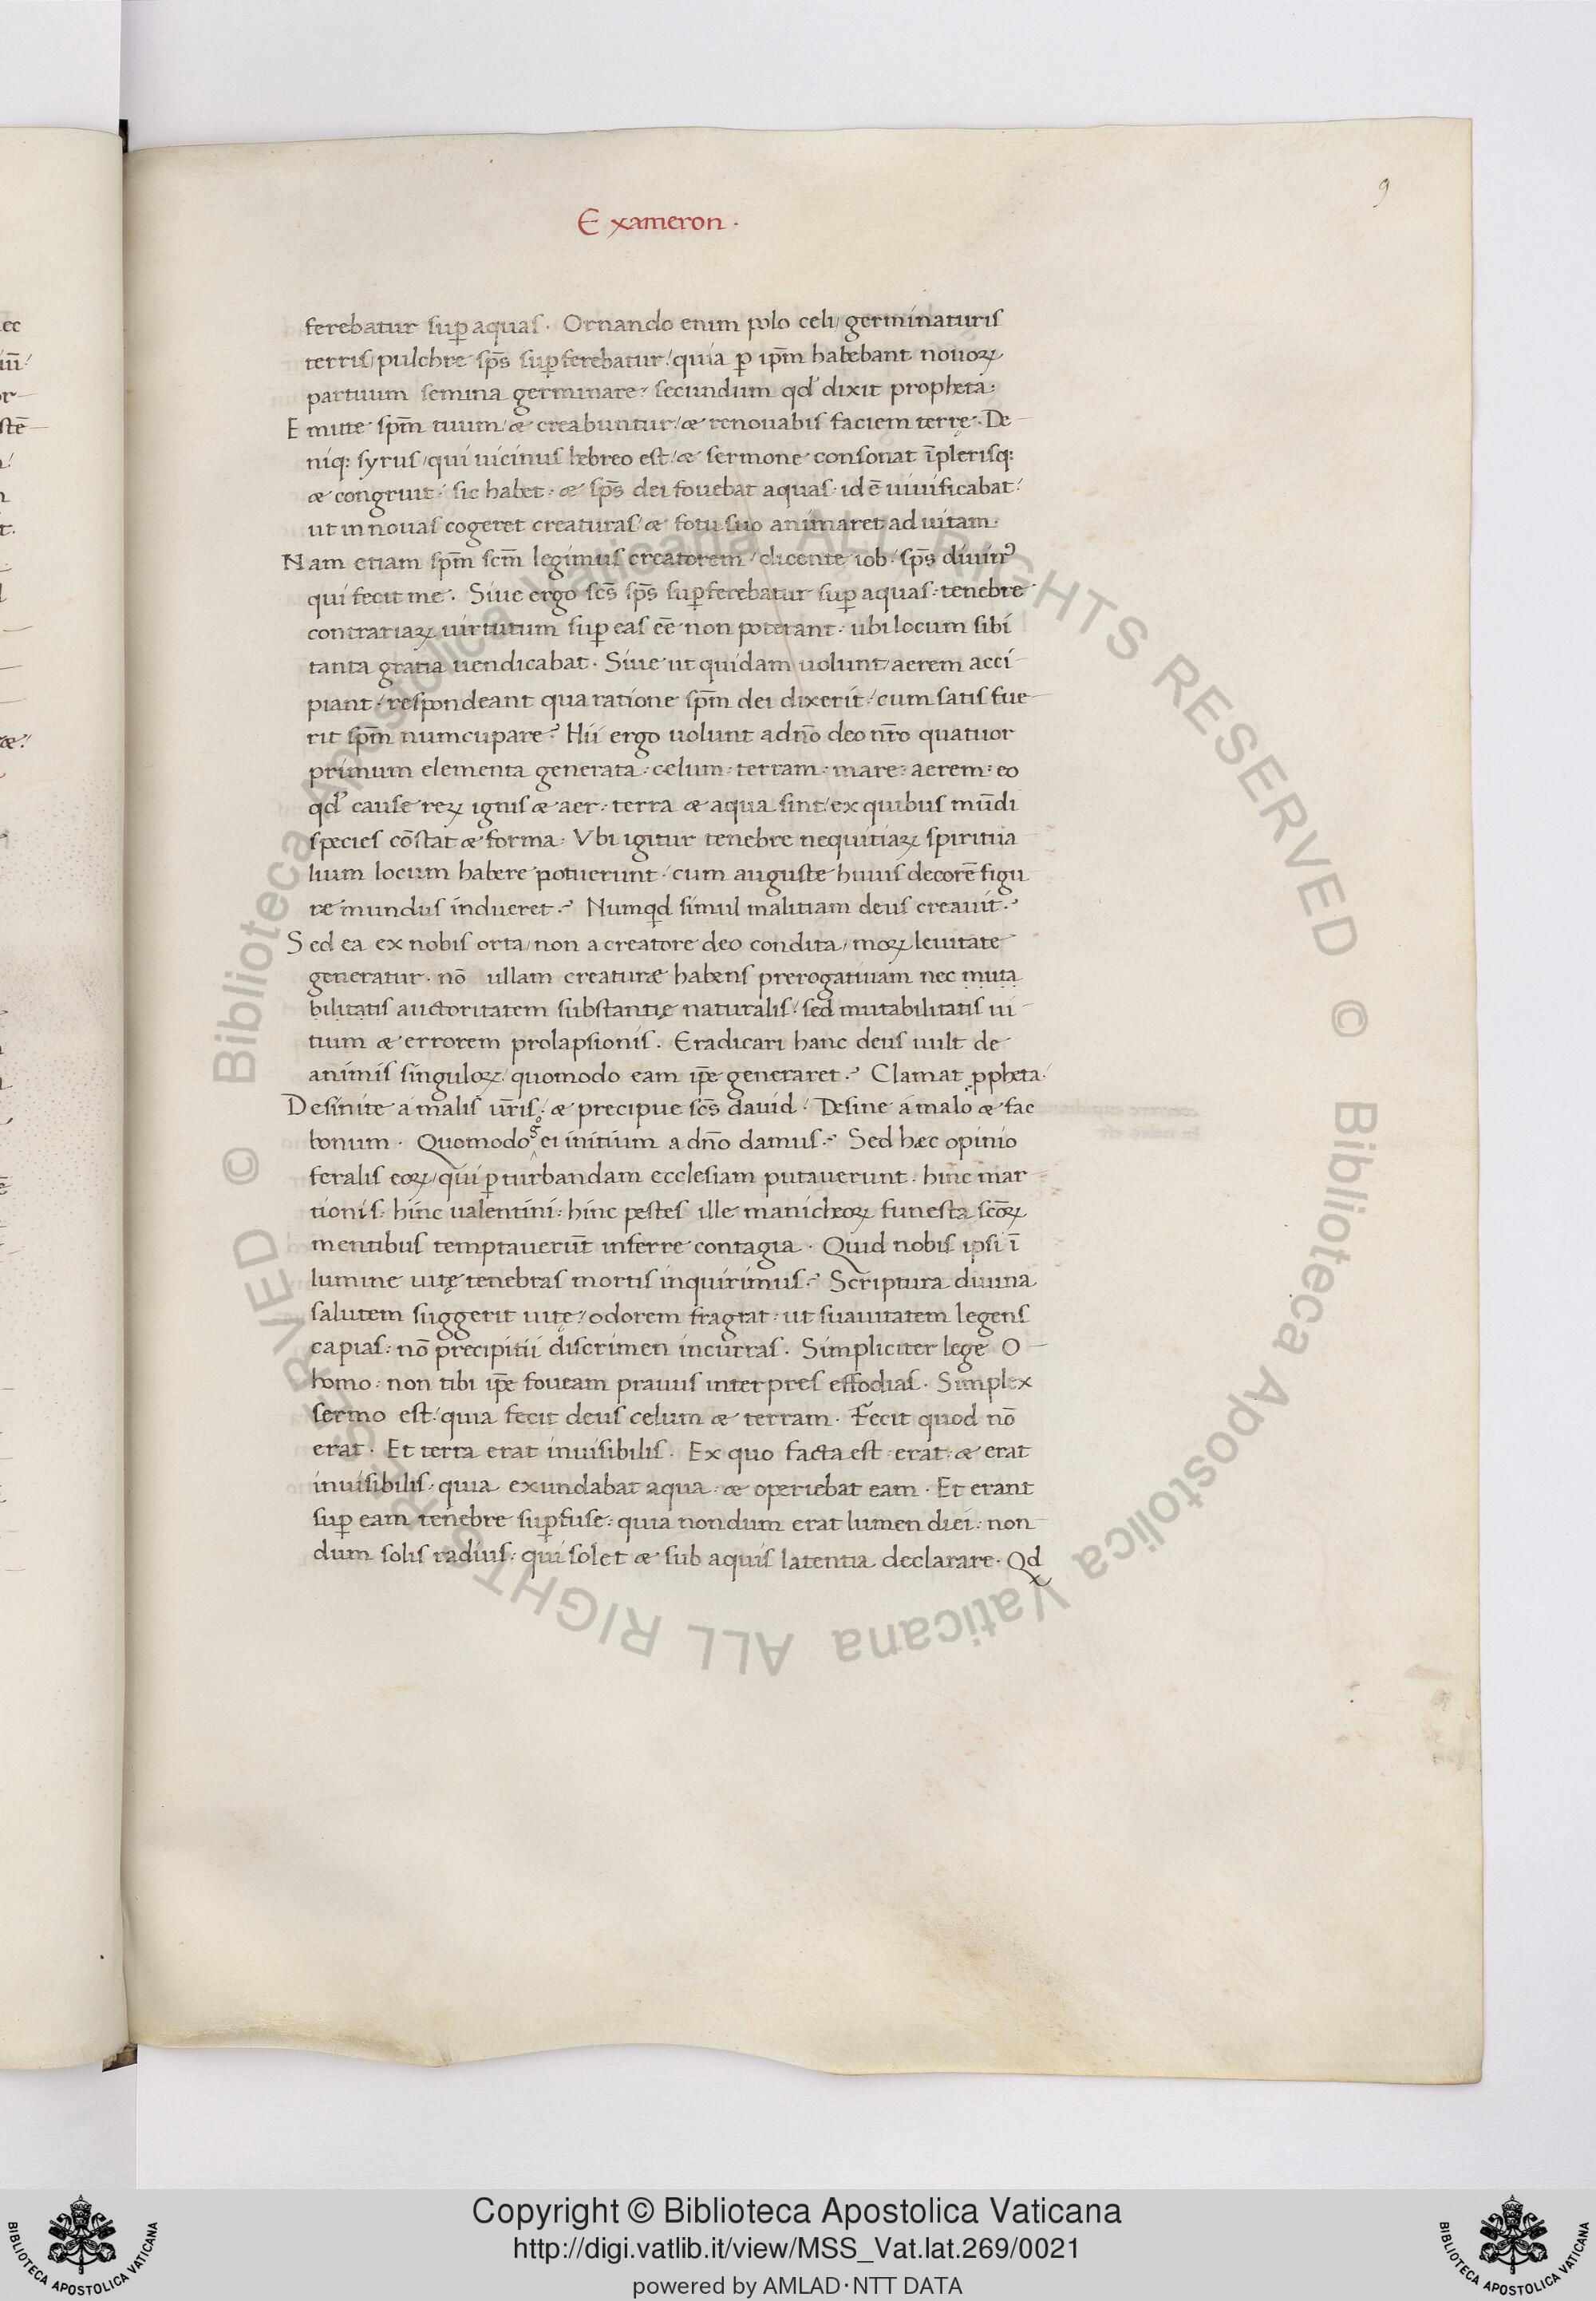 9
Exameron ·
ferebatur suꝑ aquas · Ornando enim polo celi / germinaturis
terris / pulchre sp̄s suꝑferebatur / quia ꝑ ip̄m habebant nouoꝝ
partuum semina germinare / secundum qd̓ dixit propheta :
Emitte sp̄m tuum / & creabuntur / & renouabis faciem terrę · De
niq: syrus / qui uicinus hebreo est / & sermone consonat ī plerisq:
& congruit · sic habet · & sp̄s dei fouebat aquas · id ē uiuificabat /
ut in nouas cogeret creaturas / & fotu suo animaret ad uitam ·
Nam etiam sp̄m scm̄ legimus creatorem / dicente iob / sp̄s diuinꝰ
qui fecit me · Siue ergo scs̄ sp̄s suꝑferebatur suꝑ aquas · tenebre
contrariaꝝ uirtutum suꝑ eas eē non poterant · ubi locum sibi
tanta gratia uendicabat · Siue ut quidam uolunt / aerem acci
piant / respondeant qua ratione sp̄m dei dixerit / cum satis fue
rit sp̄m numcupare ? Hii ergo uolunt a dn̄o deo nr̄o quatuor
primum elementa generata · celum · terram · mare · aerem · eo
qd̓ cause reꝝ ignis & aer · terra & aqua sint / ex quibus mūdi
species cōstat & forma · Vbi igitur tenebre nequitiaꝝ spiritua
lium locum habere potuerunt · cum auguste huius decorē figu
re mundus indueret ? Numqd simul malitiam deus creauit ?
Sed ea ex nobis orta / non a creatore deo condita / moꝝ leuitate
generatur · nō ullam creaturæ habens prerogatiuam nec muta
bilitatis auctoritatem substantię naturalis / sed mutabilitatis ui
tium & errorem prolapsionis · Eradicari hanc deus uult de
animis singuloꝝ / quomodo eam ip̄e generaret ? Clamat ꝓpheta /
Desinite a malis ur̄is / & precipue scs̄ dauid · Desine a malo & fac
bonum · Quomodo gͦ ei initium a dn̄o damus ? Sed hæc opinio
feralis eoꝝ / qui ꝑturbandam ecclesiam putauerunt · hinc mar
tionis · hinc ualentini · hinc pestes ille manicheoꝝ funesta scōꝝ
mentibus temptauerūt inferre contagia · Quid nobis ipsi ī
lumine uitę tenebras mortis inquirimus ? Scriptura diuina
salutem suggerit uitę / odorem fragtat · ut suauitatem legens
capias · nō precipitii discrimen incurras · Simpliciter lege O
homo · non tibi ip̄e foueam prauus interpres effodias · Simplex
sermo est / quia fecit deus celum & terram · Fecit quod nō
erat · Et terra erat inuisibilis · Ex quo facta est · erat · & erat
inuisibilis · quia exundabat aqua · & operiebat eam · Et erant
suꝑ eam tenebre suꝑfuse · quia nondum erat lumen diei · non
dum solis radius · qui solet & sub aquis latentia declarare · Qd
© Biblioteca Apostolica Vaticana ALL RIGHTS RESERVED © Biblioteca Apostolica Vaticana ALL RIGHTS RESERVED
Copyright © Biblioteca Apostolica Vaticana
http://digi.vatlib.it/view/MSS_Vat.lat.269/0021
powered by AMLAD·NTT DATA
BIBLIOTECA APOSTOLICA VATICANA
BIBLIOTECA APOSTOLICA VATICANA